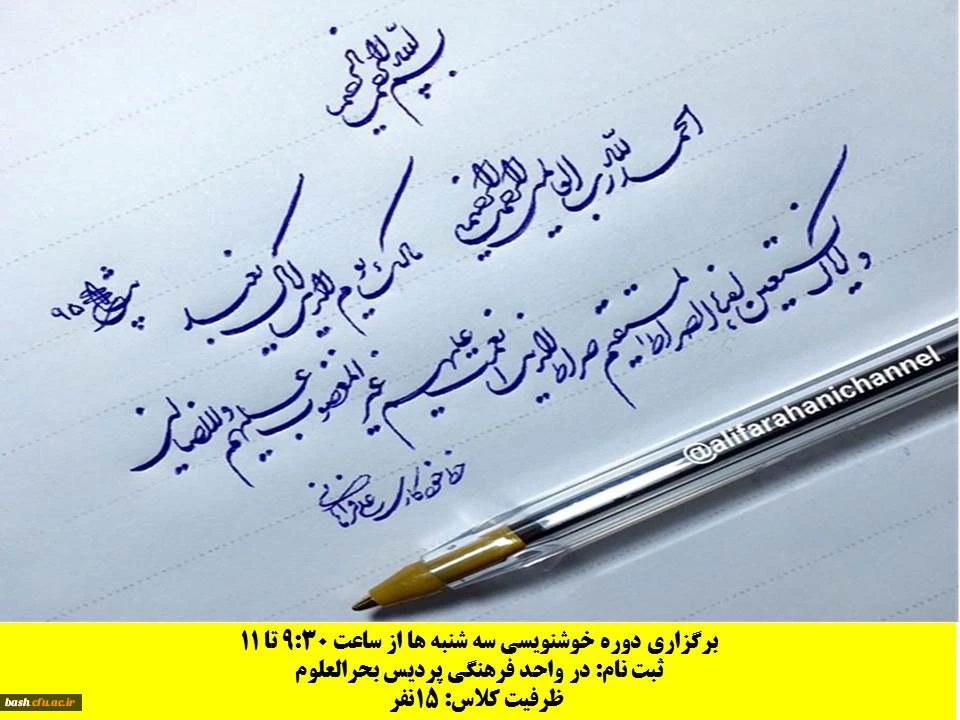 بسم الله الرحمن الرحیم
الحمد لله رب العالمین الرحمن الرحیم
مالک یوم الدین ایاک نعبد
و ایاک نستعین اهدنا الصراط المستقیم صراط الذین انعمت علیهم غیر المغضوب علیهم و لا الضالین
۹۵
علی فراهانی
@alifarahanichannel
برگزاری دوره خوشنویسی سه شنبه ها از ساعت ۹:۳۰ تا ۱۱
ثبت نام: در واحد فرهنگی پردیس بحرالعلوم
ظرفیت کلاس: ۱۵نفر
bash.cfu.ac.ir